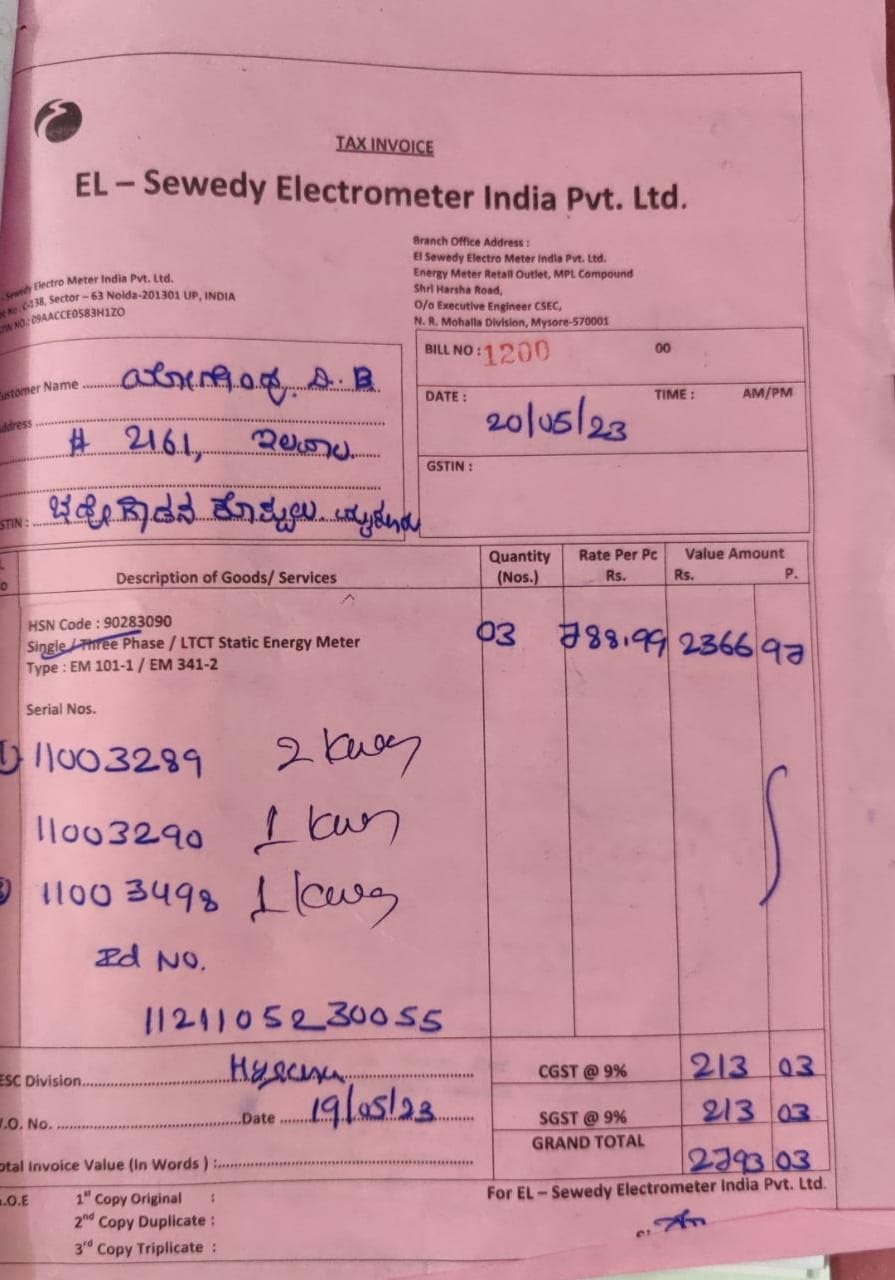 TAX INVOICE
EL – Sewedy Electrometer India Pvt. Ltd.
Sewedy Electro Meter India Pvt. Ltd.
C-138, Sector – 63 Noida-201301 UP, INDIA
NO.: 09AACCE0583H1ZO
Branch Office Address :
El Sewedy Electro Meter India Pvt. Ltd.
Energy Meter Retail Outlet, MPL Compound
Shri Harsha Road,
O/o Executive Engineer CSEC,
N. R. Mohalla Division, Mysore-570001
BILL NO : 1200 00
DATE : 20/05/23 TIME : AM/PM
GSTIN :
ustomer Name
ddress
# 2161,
STIN :
Description of Goods/ Services
Quantity (Nos.)
Rate Per Pc Rs.
Value Amount Rs. P.
HSN Code : 90283090
Single / Three Phase / LTCT Static Energy Meter 03 788.99 2366 97
Type : EM 101-1 / EM 341-2
Serial Nos.
1) 11003289 2
11003290 1
11003498 1
Id NO.
1121105230055
ESC Division
CGST @ 9% 213 03
.O. No. Date 19/05/23
SGST @ 9% 213 03
GRAND TOTAL 2793 03
otal Invoice Value (In Words ) :
For EL – Sewedy Electrometer India Pvt. Ltd.
.O.E 1st Copy Original :
2nd Copy Duplicate :
3rd Copy Triplicate :